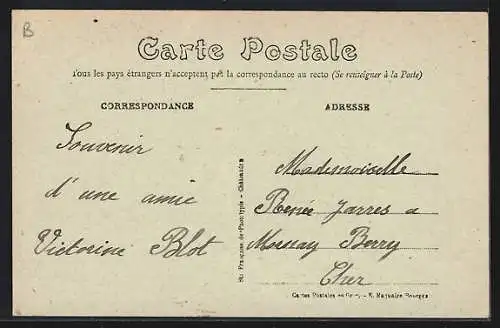 B
Carte Postale
Tous les pays étrangers n'acceptent pas la correspondance au recto (Se renseigner à la Poste)
CORRESPONDANCE
ADRESSE
Souvenir
d'une amie
Victorine Blot
Sté Française de Phototypie - Châteaudun
Mademoiselle
Renée Jarres a
Mornay Berry
Cher
Cartes Postales en Gros, - E. Maquaire Bourges